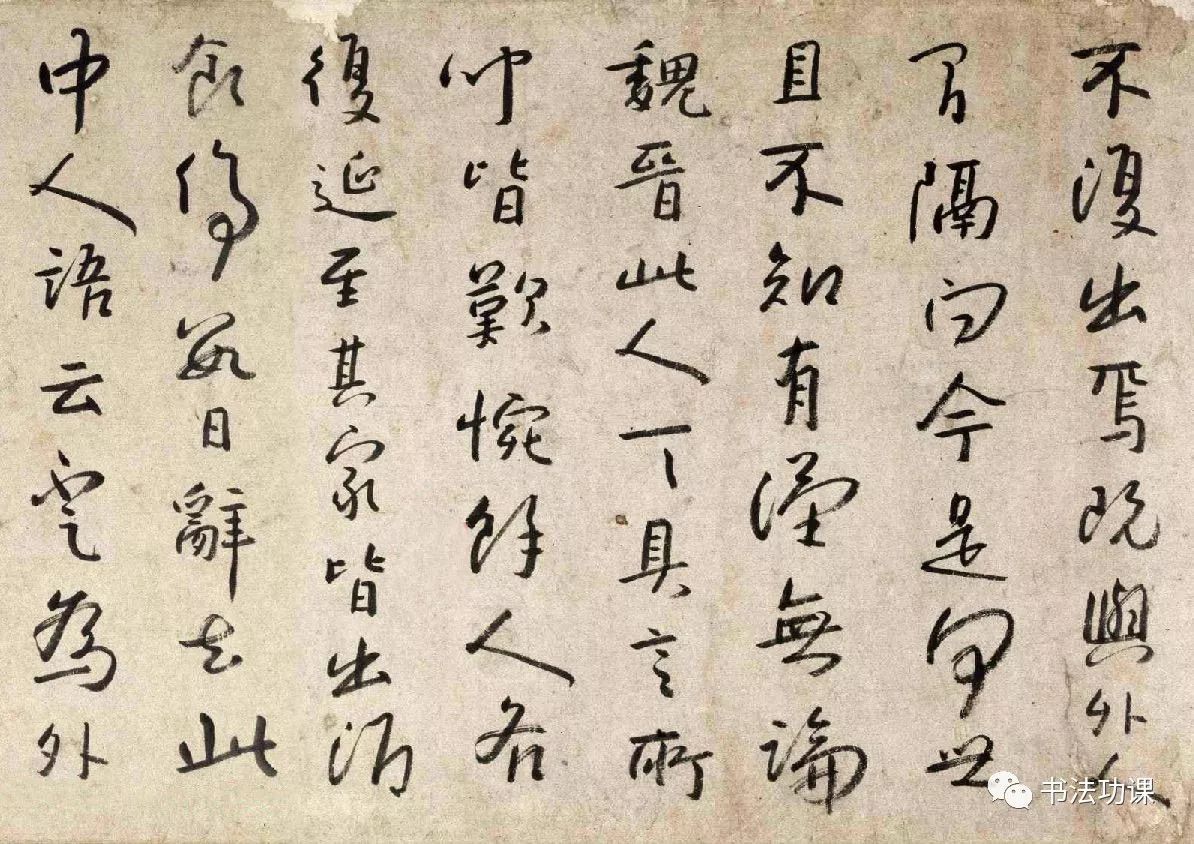 不復出焉既與外人
間隔問今是何世
且不知有漢無論
魏晉此人一一具言所
聞皆歎惋餘人各
復延至其家皆出酒
食停數日辭去此
中人語云不足為外
书法功课